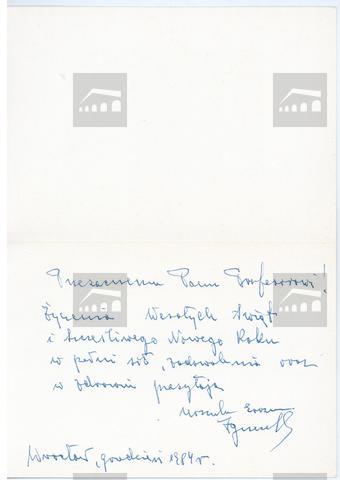 Przezacnemu Panu Profesorowi!
Życzenia Wesołych Świąt
i Szczęśliwego Nowego Roku
w pełni sił, zadowolenia oraz
w zdrowiu przesyłają
Wrocław, grudzień 1984 r.